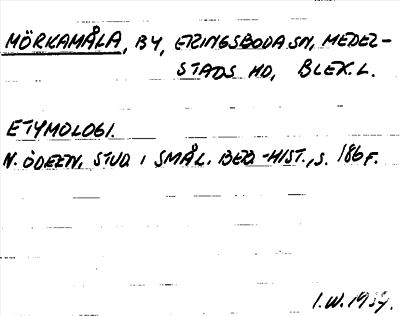 MÖRKAMÅLA, BY, ERINGSBODA SN, MEDEL-
STADS HD, BLEK. L.
ETYMOLOGI.
N. ÖDEEN, STUD. I SMÅL. BEB.-HIST., S. 186 F.
I.W. 1934.